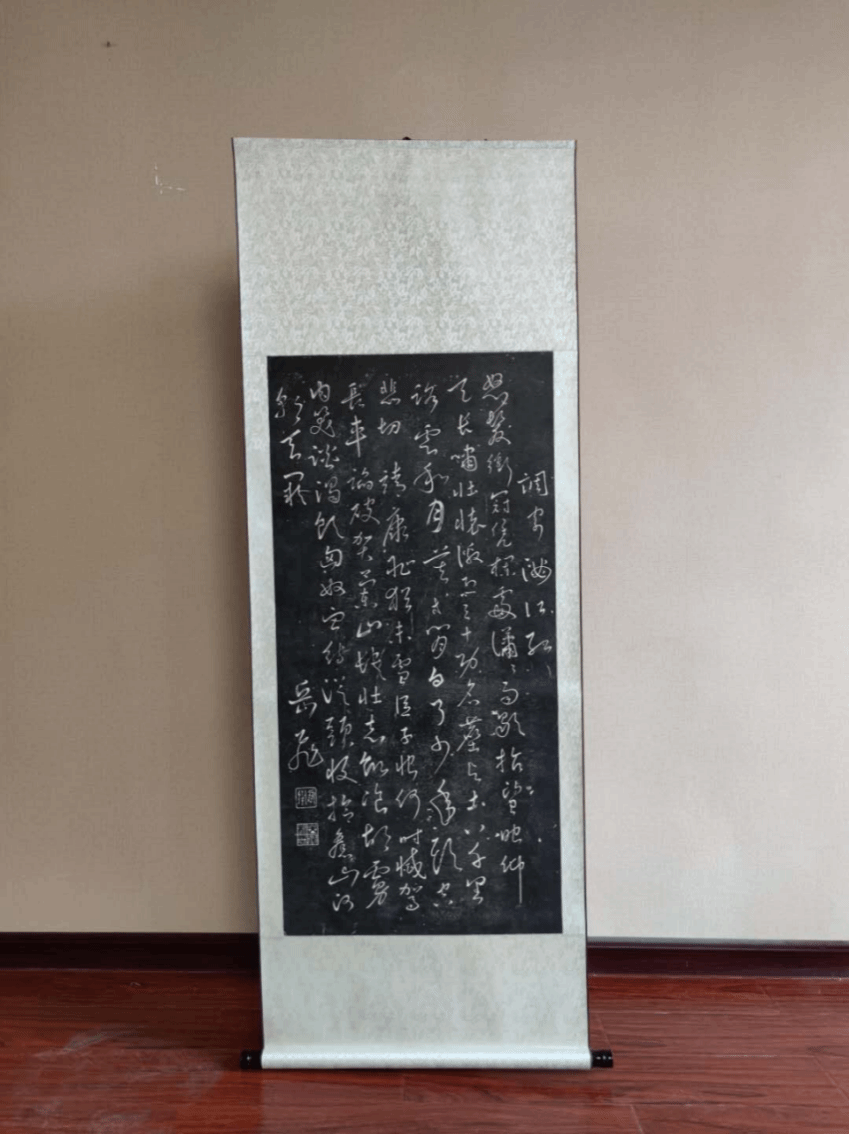 調寄滿江紅
怒髮衝冠凭欄處瀟瀟雨歇抬望眼仰
天長嘯壯懷激烈三十功名塵與土八千里
路雲和月莫等閒白了少年頭空
悲切 靖康恥猶未雪臣子恨何時滅駕
長車踏破賀蘭山缺壯志飢飡胡虜
肉笑談渴飲匈奴血待從頭收拾舊山河
朝天闕
岳飛